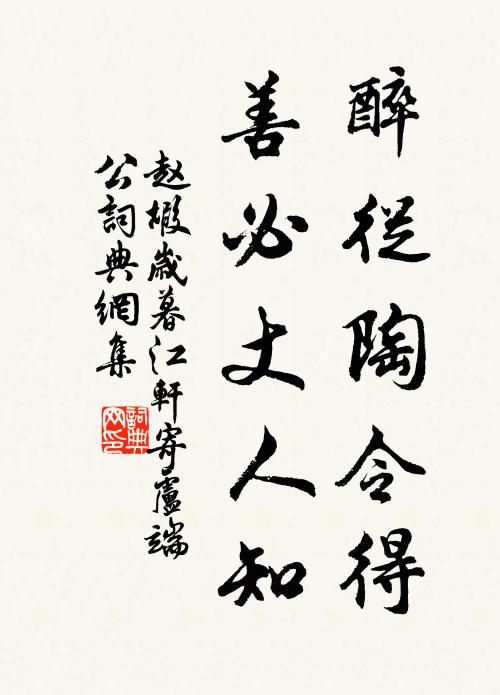 醉從陶令得
善必丈人知
赵嘏歲暮江軒寄盧端
公詞典網集
詞典网印